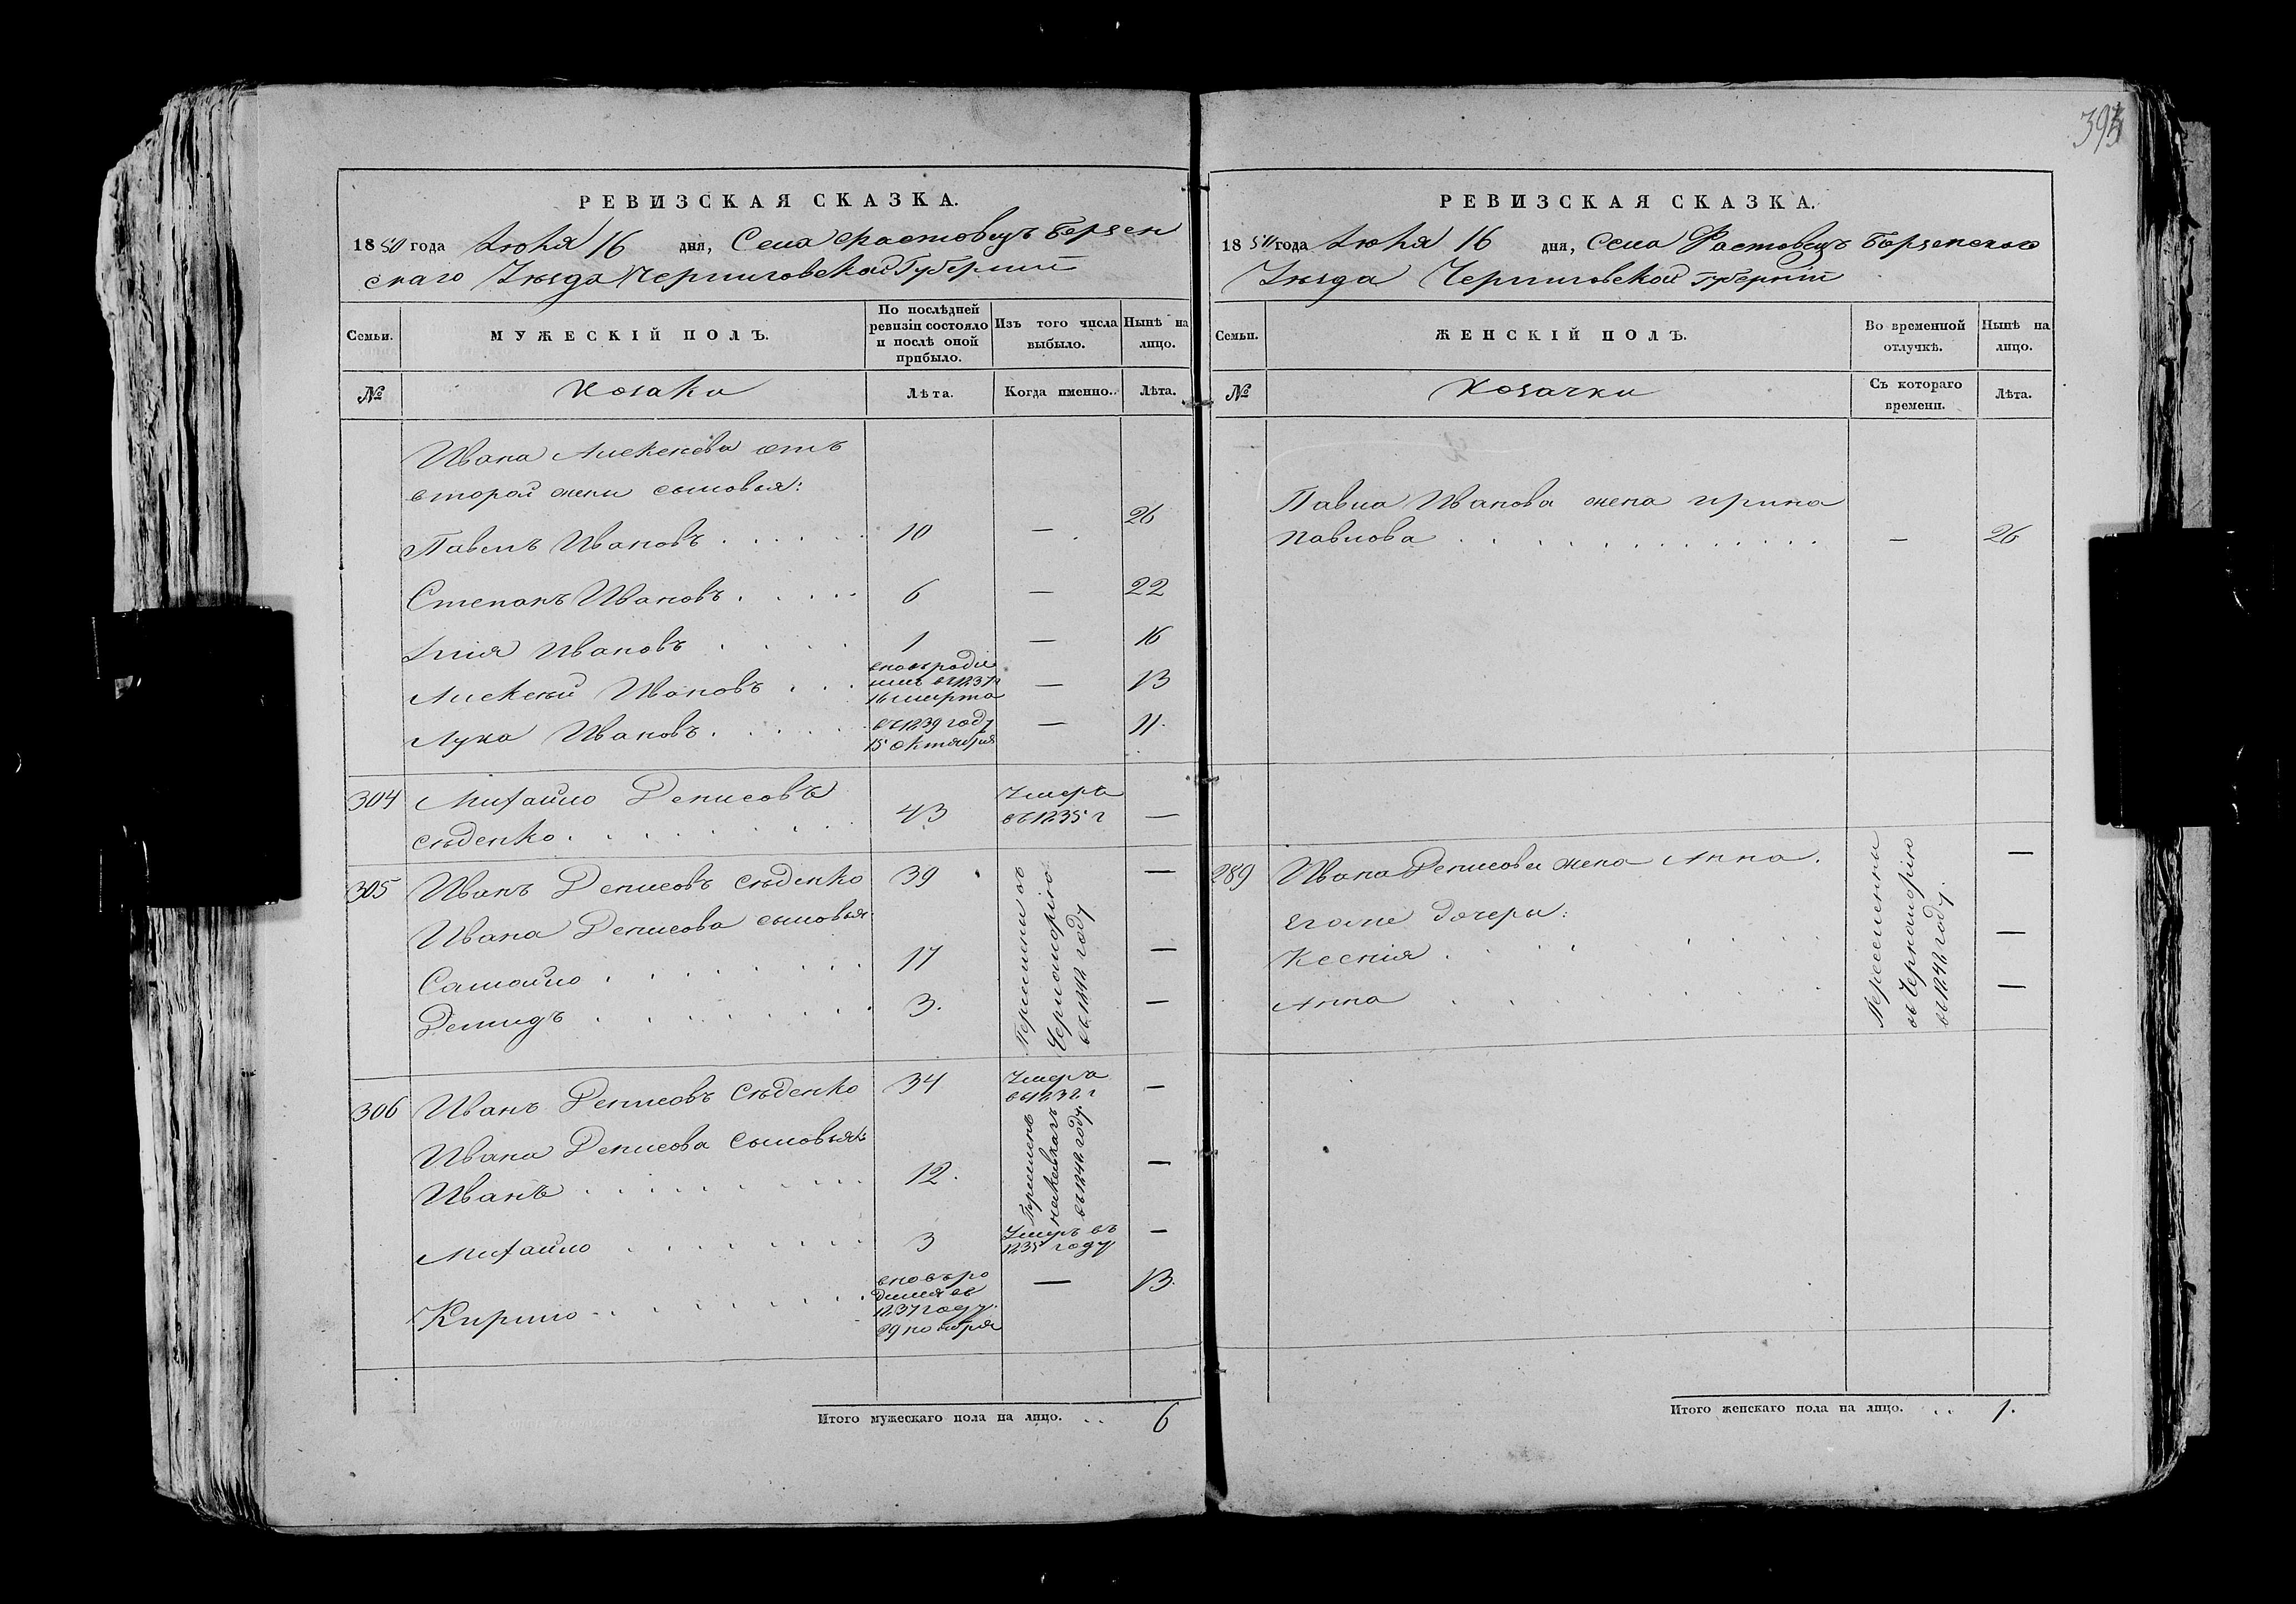 393
РЕВИЗСКАЯ СКАЗКА.
1850 года Июня 16 дня, Села Растовецъ Борзен
скаго Уѣзда Черниговской Губерніи
Семьи.
МУЖЕСКІЙ ПОЛЪ.
По послѣдней ревизіи состояло и послѣ оной прибыло.
Изъ того числа выбыло.
Нынѣ на лицо.
№
Козаки
Лѣта.
Когда именно.
Лѣта.
Ивана Алексеева отъ
второй жены сыновья:
Павелъ Ивановъ . . . . . 10 — 26
Степанъ Ивановъ . . . . . 6 — 22
Илія Ивановъ . . . . 1 — 16
Алексей Ивановъ . . . вновь роди
лся въ 1837 г
16 марта — 13
Лука Ивановъ . . . . . въ 1839 году
15 октября — 11.
304 Михайло Денисовъ
Сѣденко . . . . . . . 43 Умеръ
въ 1835 г —
305 Иванъ Денисовъ Сѣденко 39 —
Ивана Денисова сыновья:
Самойло . . . . . . . 17 —
Демидъ . . . . . . . 3. —
Переселены въ
Черноморію
въ 1842 году
306 Иванъ Денисовъ Сѣденко 34 Умеръ
въ 1837 г —
Ивана Денисова сыновья:
Иванъ . . . . . . . 12. —
въ 1842 году.
Михайло . . . . . . . 3 Умеръ въ
1835 году —
Кирило . . . . . . . вновь ро
дился въ
1837 году.
29 ноября — 13.
Итого мужескаго пола на лицо. . . 6
РЕВИЗСКАЯ СКАЗКА.
1850 года Июня 16 дня, Села Растовецъ Борзенскаго
Уѣзда Черниговской Губерніи
Семьи.
ЖЕНСКІЙ ПОЛЪ.
Во временной отлучкѣ.
Нынѣ на лицо.
№
Козачки
Съ котораго времени.
Лѣта.
Павла Иванова жена Ирина
Павлова . . . . . . . . . . . — 26
289 Ивана Денисова жена Анна. —
Его же дочеры:
Ксенія . . . . . . —
Анна . . . . . . . —
Переселены
въ Черноморію
въ 1842 году.
Итого женскаго пола на лицо. . . 1.